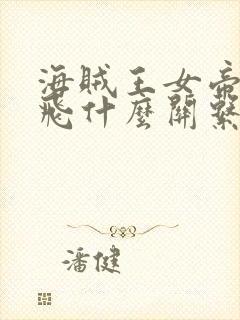 海贼王女帝
飛什麼關繫
潘健